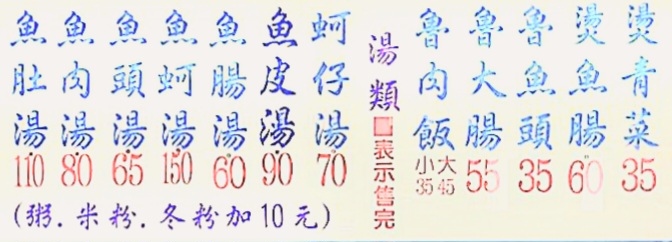 燙青菜 35
燙魚腸 60
魯魚頭 35
魯大腸 55
魯肉飯 小35 大45
湯類 ■表示售完
蚵仔湯 70
魚皮湯 90
魚腸湯 60
魚蚵湯 150
魚頭湯 65
魚肉湯 80
魚肚湯 110
(粥.米粉.冬粉加10元)